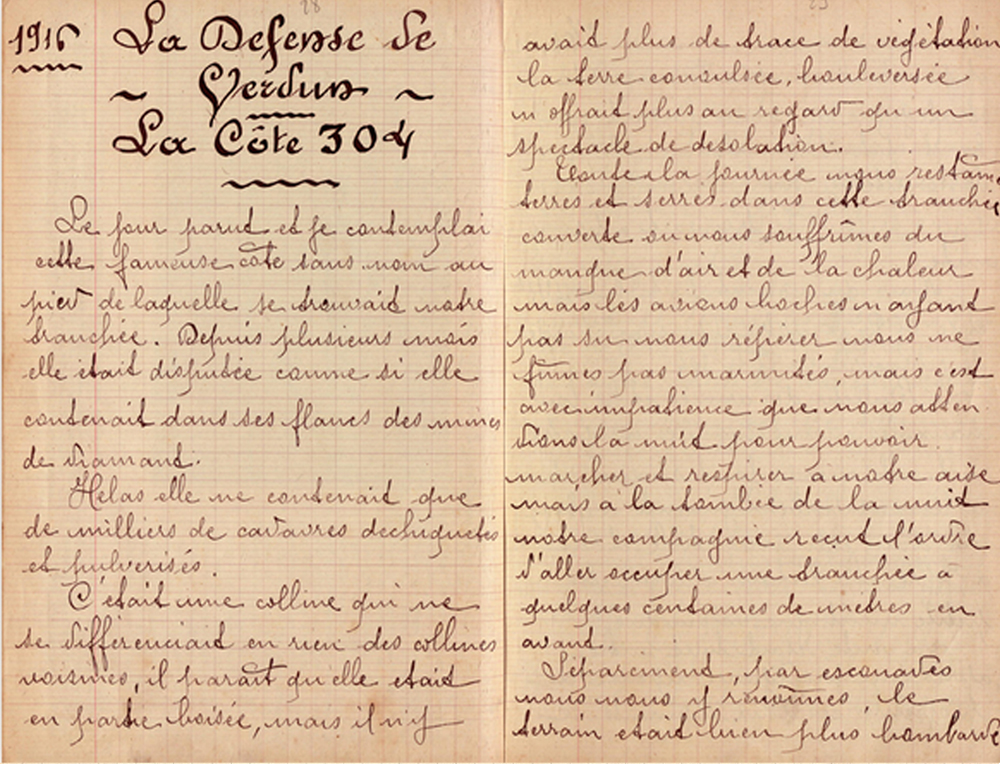 1916
La Défense de
~ Verdun ~
La Côte 304
Le jour parut et je contemplai
cette fameuse côte sans nom au
pied de laquelle se trouvait notre
tranchée. Depuis plusieurs mois
elle était disputée comme si elle
contenait dans ses flancs des mines
de diamant.
Helas elle ne contenait que
de milliers de cadavres dechiquetés
et pulverisés.
C'était une colline qui ne
se différenciait en rien des collines
voisines, il parait qu'elle etait
en partie boisée, mais il n'y
avait plus de trace de végétation
la terre convulsée, bouleversée
n offrait plus au regard qu un
spectacle de desolation.
Toute la journée nous restâm
terres et serrés dans cette tranchée
couverte ou nous souffrîmes du
manque d'air et de la chaleur
mais les avions boches n ayant
pas su nous répérer nous ne
fûmes pas marmités, mais c'est
avec impatience que nous atten
dions la nuit pour pouvoir
marcher et respirer a notre aise
mais à la tombée de la nuit
notre compagnie reçut l'ordre
d'aller occuper une tranchée a
quelques centaines de mètres en
avant.
Séparement, par escouades
nous nous y rendîmes, le
terrain etait bien plus bombardé